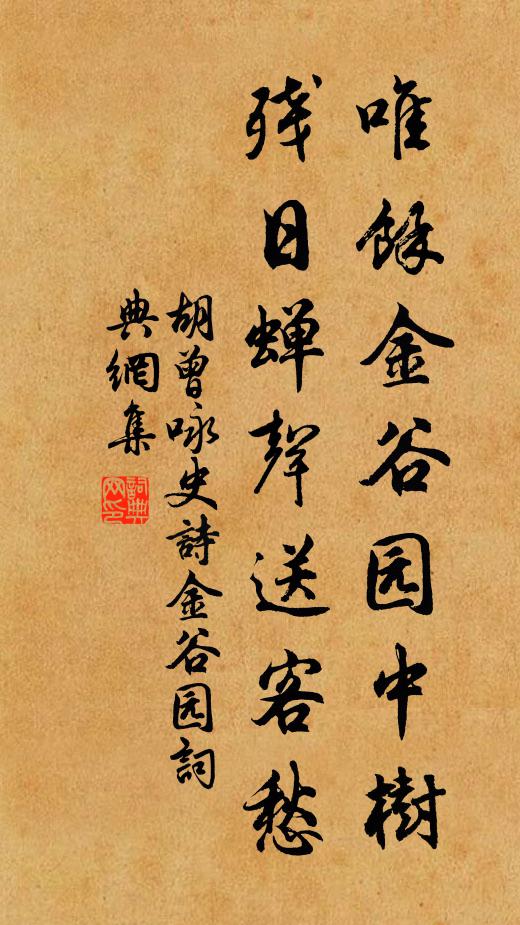 唯餘金谷园中樹
残日蝉聲送客愁
胡曾咏史詩金谷园詞
典網集
詞典网印